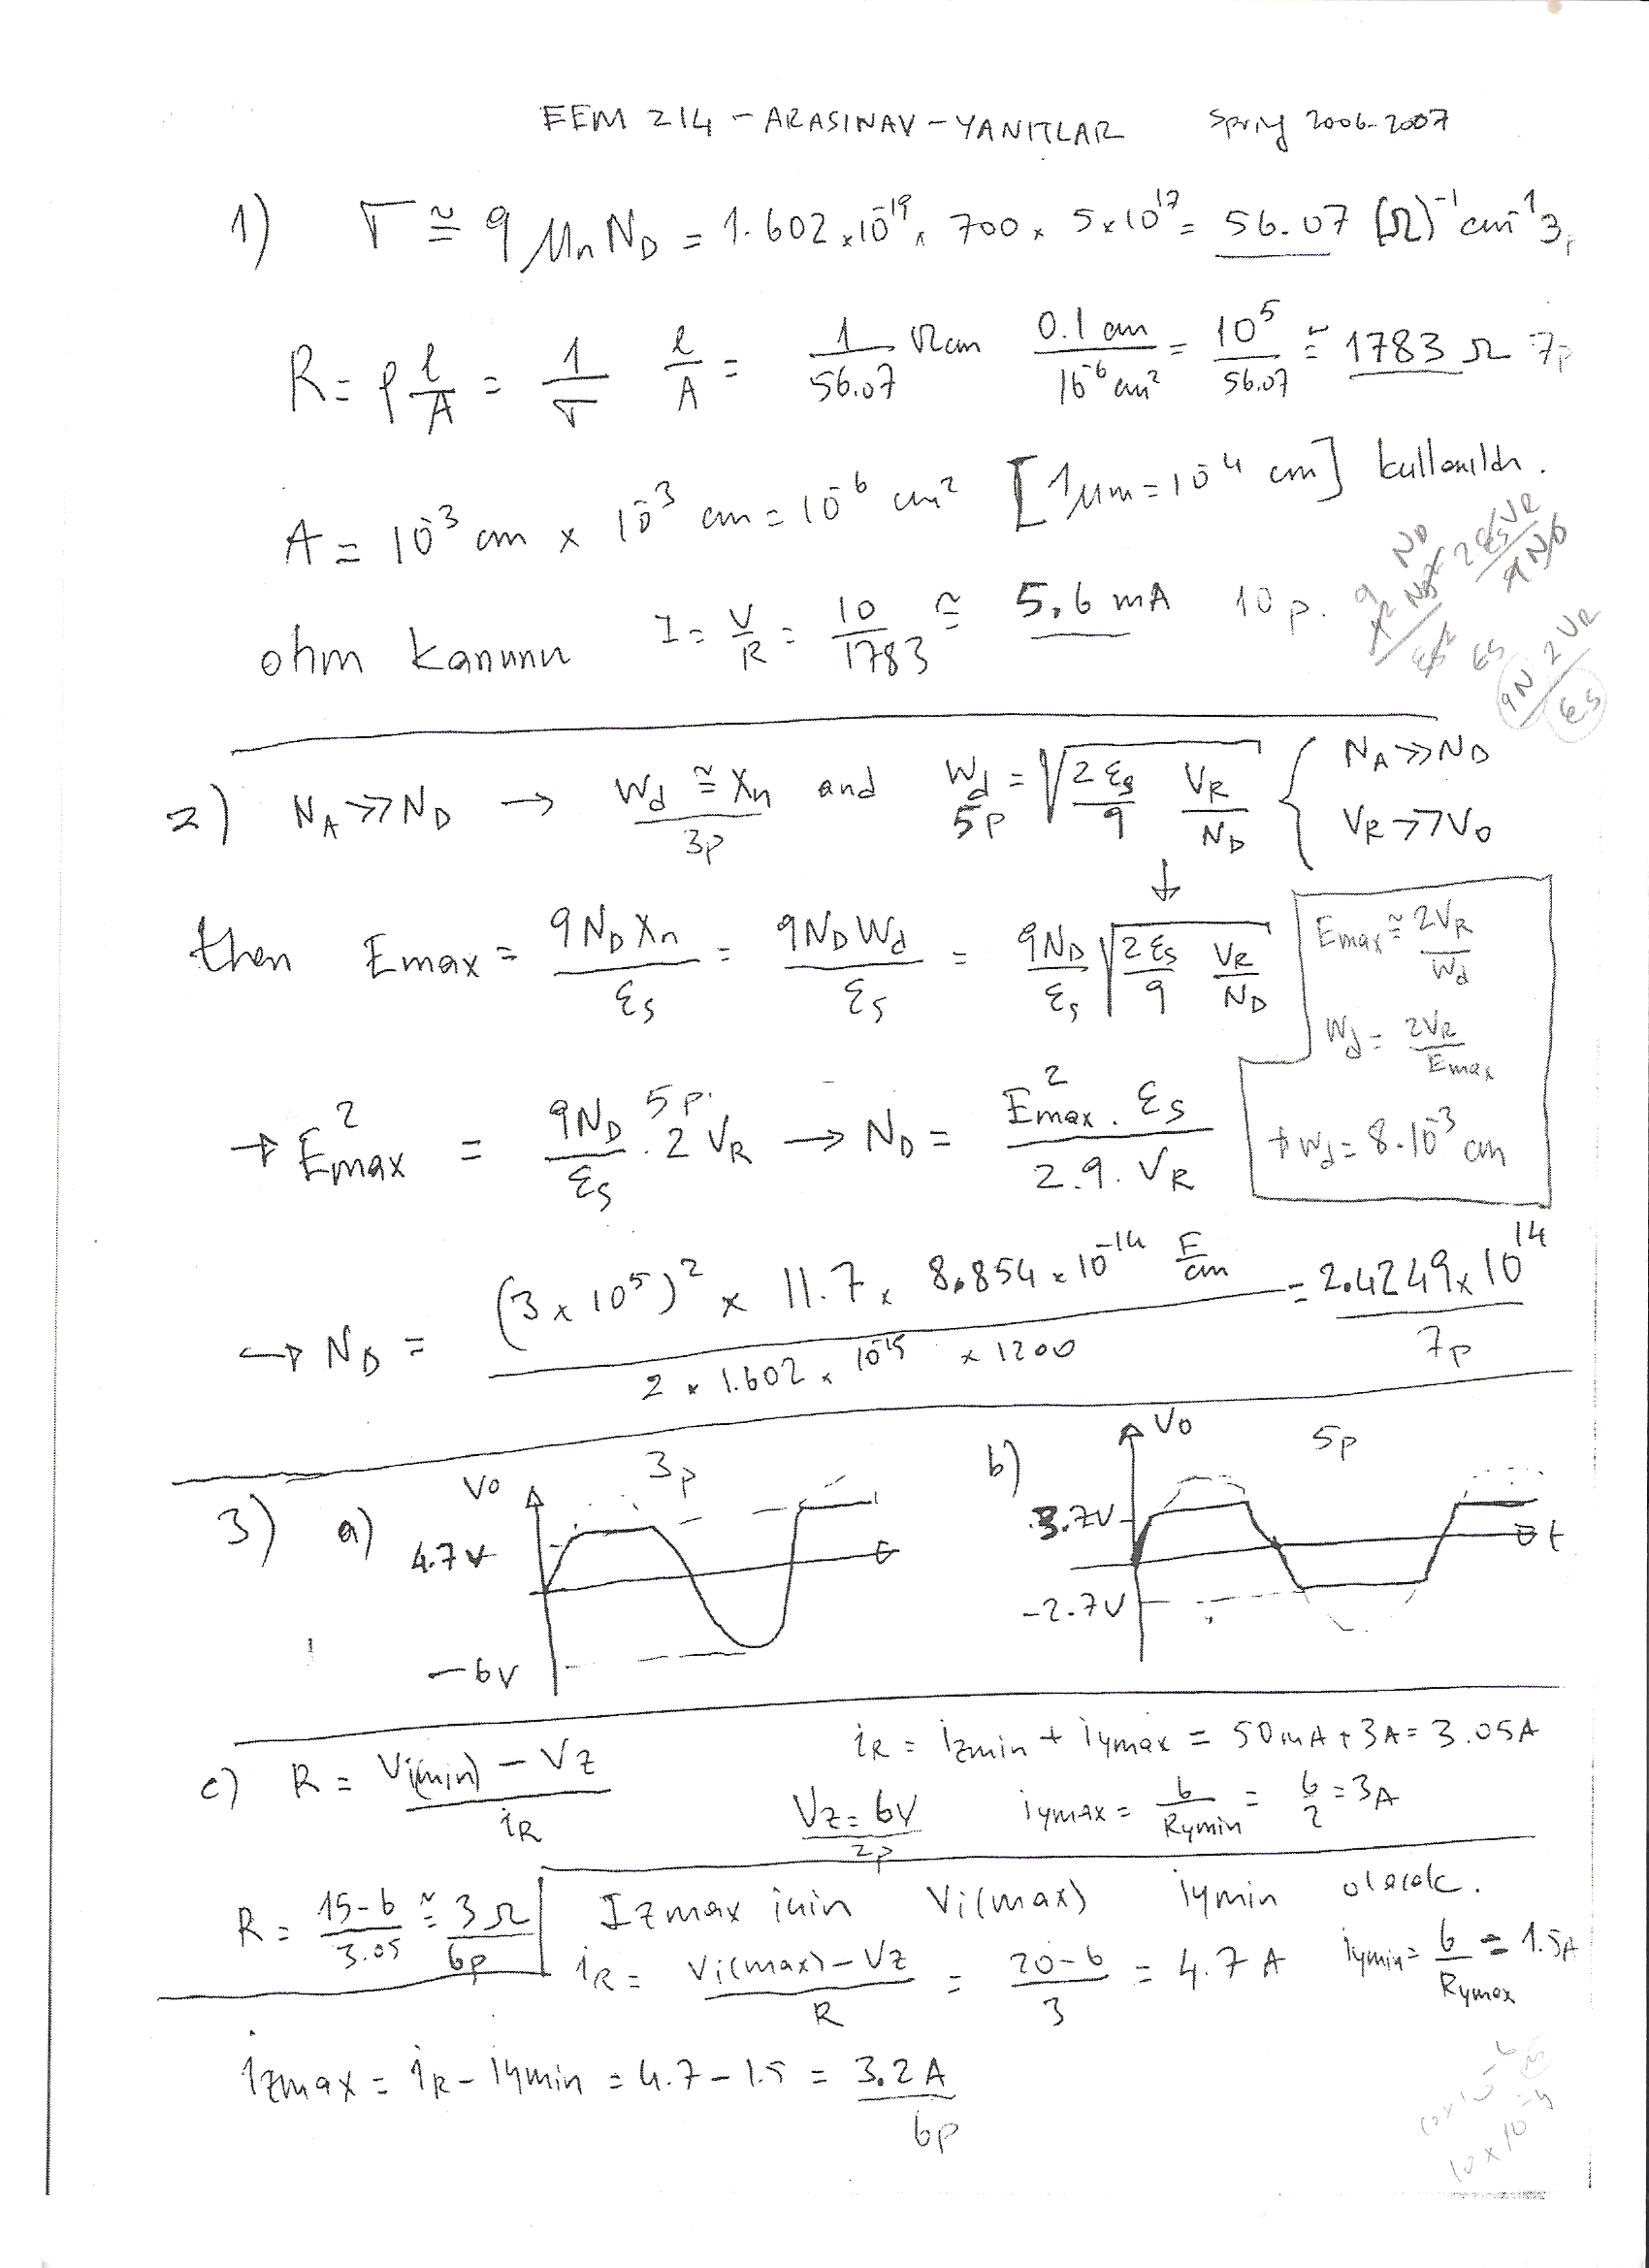 EEM 214 - ARASINAV - YANITLAR Spring 2006-2007
1) σ ≅ q μn ND = 1.602 x 10^-19 x 700 x 5x10^17 = 56.07 (Ω)^-1 cm^-1 3p
R = ρ l/A = 1/σ l/A = 1/56.07 Ωcm 0.1 cm/10^-6 cm² = 10^5/56.07 ≅ 1783 Ω 7p
A = 10^-3 cm x 10^-3 cm = 10^-6 cm² [1μm = 10^-4 cm] kullanıldı.
ohm kanunu I = V/R = 10/1783 ≅ 5.6 mA 10 p.
2) NA >> ND → Wd ≅ Xn and Wd = √(2εs/q VR/ND) { NA >> ND
3p 5p VR >> V0
then Emax = qNDXn/εs = qNDWd/εs = qND/εs √(2εs/q VR/ND)
Emax ≅ 2VR/Wd
Wd = 2VR/Emax
→ Wd = 8.10^-3 cm
→ Emax² = qND/εs . 2VR 5p. → ND = Emax² . εs/2.q.VR
↪ ND = (3 x 10^5)² x 11.7 x 8.854 x 10^-14 F/cm / 2 x 1.602 x 10^-19 x 1200 = 2.4249 x 10^14
7p
3) a) Vo 3p
4.7V
t
-6V
b) Vo 5p
3.7V
t
-2.7V
c) R = Vi(min) - VZ/iR
iR = iZmin + iymax = 50mA + 3A = 3.05A
VZ = 6V 2p
iymax = 6/Rymin = 6/2 = 3A
R = 15-6/3.05 ≅ 3Ω 6p
IZmax için Vi(max) iymin olacak.
iR = Vi(max) - VZ/R = 20-6/3 = 4.7 A iymin = 6/Rymax = 1.5A
iZmax = iR - iymin = 4.7 - 1.5 = 3.2A
6p